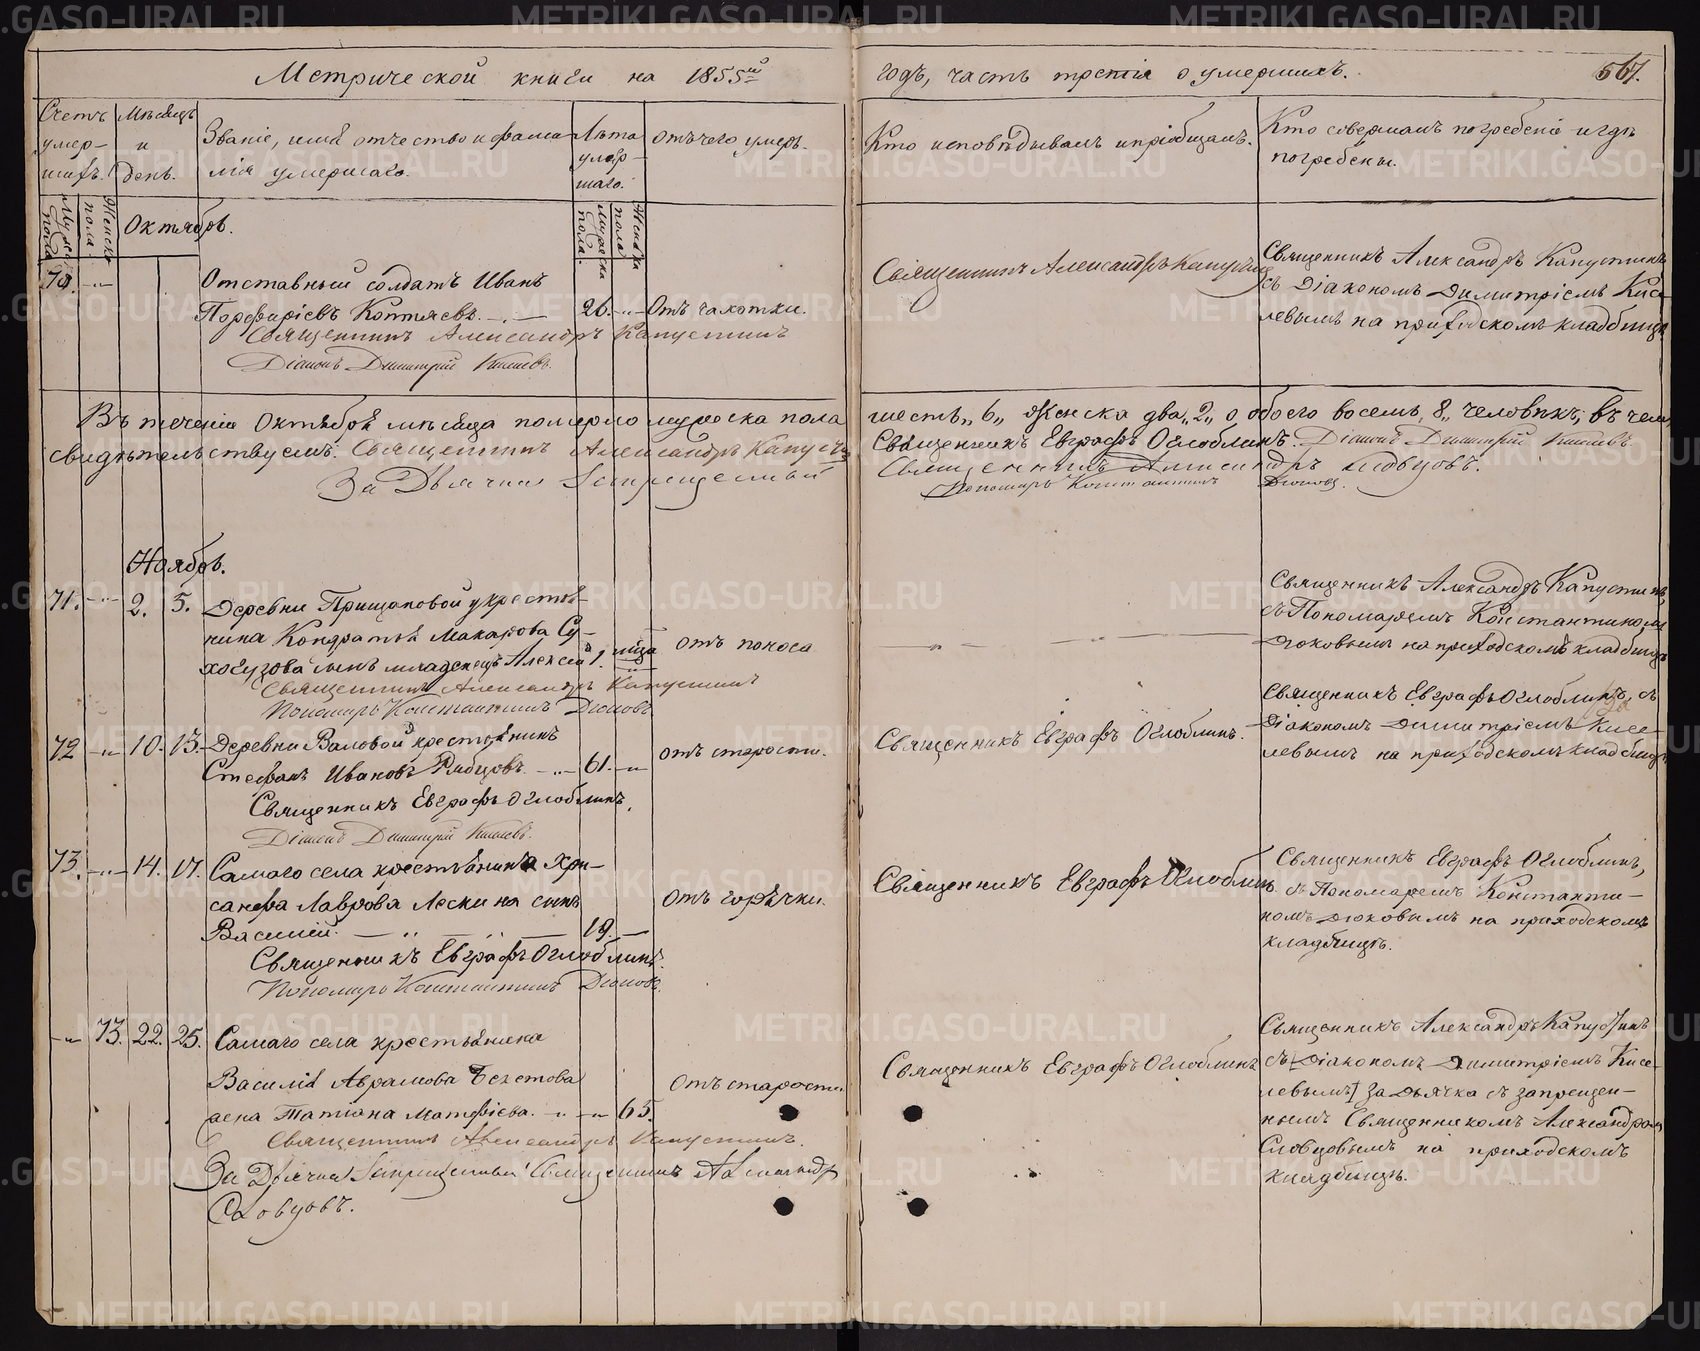 Метрической книги на 1855й
годъ, часть третія о умершихъ.
567.
Счетъ умер-шихъ.
Мѣсяцъ и день.
Званіе, имя отчество и фами-
лія умершаго.
Лѣта умер-шаго.
Отъ чего умеръ.
Кто исповѣдывалъ и пріобщалъ.
Кто совершалъ погребеніе и гдѣ
погребены.
Мужеска пола
Женска пола
Октябрь.
Мужеска пола
Женска пола
70. -"-
Отставный солдатъ Иванъ
Порфиріевъ Коптяевъ. 26. -"- Отъ чахотки.
Священникъ Александръ Капустинъ
Діаконъ Димитрій Киселевъ.
Священникъ Александръ Капустинъ
Священникъ Александръ Капустинъ
съ Діакономъ Димитріемъ Кисе-
левымъ на приходскомъ кладбищѣ
Въ теченіи Октября мѣсяца померло мужеска пола шесть "6" женска два "2" а обоего восемь "8" человѣкъ; въ чемъ
свидѣтельствуемъ: Священникъ Александръ Капустинъ
Священникъ Евграфъ Оглоблинъ. Діаконъ Димитрій Киселевъ.
За Дьячка Запрещенный
Священникъ Александръ Словцовъ.
Пономарь Константинъ Дюковъ.
Ноябрь.
71. -"- 2. 5. Деревни Прищаповой у крестья-
нина Кондратья Макарова Су-
хогузова сынъ младенецъ Алексій 1. мѣсяца отъ поноса
Священникъ Александръ Капустинъ
Пономарь Константинъ Дюковъ
- " -
Священникъ Александръ Капустинъ,
съ Пономаремъ Константиномъ
Дюковымъ на приходскомъ кладбищѣ
72 -"- 10. 13. Деревни Валовой крестьянинъ
Стефанъ Ивановъ Рябцовъ. -"- 61. -"- отъ старости.
Священникъ Евграфъ Оглоблинъ.
Діаконъ Димитрій Киселевъ.
Священникъ Евграфъ Оглоблинъ.
Священникъ Евграфъ Оглоблинъ, съ
Діакономъ Димитріемъ Кисе-
левымъ на приходскомъ кладбищѣ
73. -"- 14. 17. Самаго села крестьянина Хри-
санфа Лаврова Лескина сынъ
Василій. - " - " - 19. - Отъ горячки.
Священникъ Евграфъ Оглоблинъ.
Пономарь Константинъ Дюковъ.
Священникъ Евграфъ Оглоблинъ.
Священникъ Евграфъ Оглоблинъ,
съ Пономаремъ Константи-
номъ Дюковымъ на приходскомъ
кладбищѣ.
-"- 73. 22. 25. Самаго села крестьянина
Василія Аврамова Бекетова
жена Татіана Матфіева. -"- -"- 65. Отъ старости
Священникъ Александръ Капустинъ.
За Дьячка Запрещенный Священникъ Александръ
Словцовъ.
Священникъ Евграфъ Оглоблинъ
Священникъ Александръ Капустинъ
съ [Діакономъ Димитріемъ Кисе-
левымъ] за Дьячка съ запрещен-
нымъ Священникомъ Александромъ
Словцовымъ на приходскомъ
кладбищѣ.
METRIKI.GASO-URAL.RU